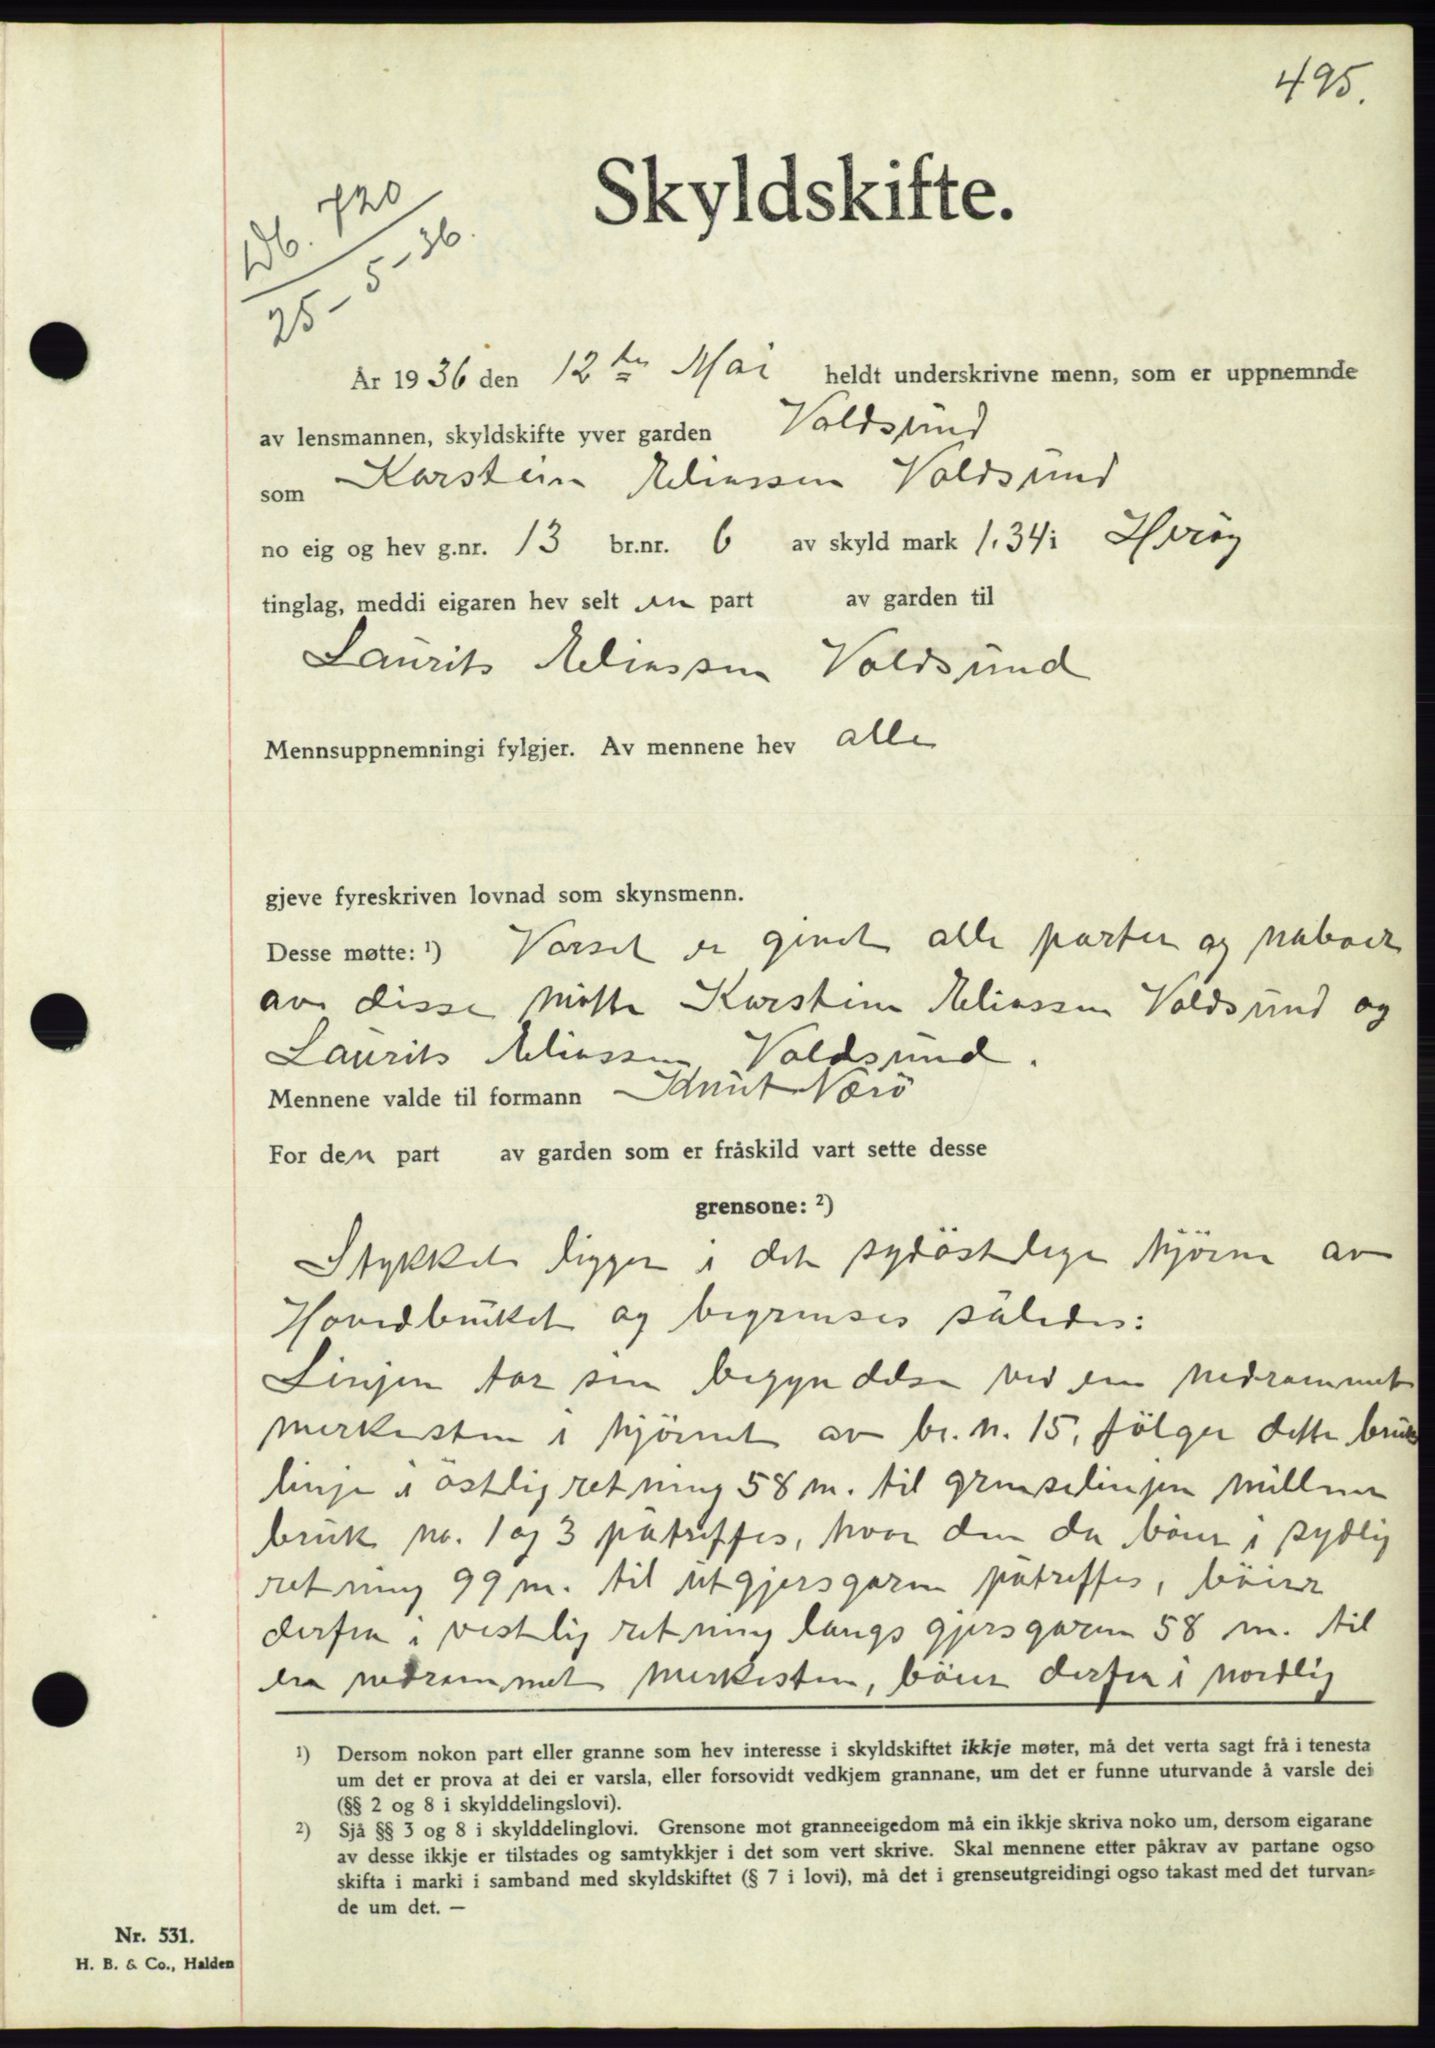 495.
Skyldskifte.
Db. 720
25-5-36.
År 1936 den 12te Mai heldt underskrivne menn, som er uppnemnde
av lensmannen, skyldskifte yver garden Voldsund
som Karstein Eliassen Voldsund
no eig og hev g.nr. 13 br.nr. 6 av skyld mark 1.34 i Herøy
tinglag, meddi eigaren hev selt en part av garden til
Laurits Eliassen Voldsund
Mennsuppnemningi fylgjer. Av mennene hev alle
gjeve fyreskriven lovnad som skynsmenn.
Desse møtte: ¹) Varsel er givet alle parter og naboer
av disse møtte Karstein Eliassen Voldsund og
Laurits Eliassen Voldsund.
Mennene valde til formann Knut Nærö
For den part av garden som er fråskild vart sette desse
grensone: ²)
Stykket ligger i det sydöstlige hjörne av
Hovedbruket og begrenses således:
Linjen tar sin begyndelse ved en nedrammet
merkesten i hjörnet av br. n. 15, fölger dette bruks
linje i östlig retning 58 m. til grenselinjen mellem
bruk no. 1 og 3 påtreffes, hvor den da böier i sydlig
retning 99 m. til utgjersgaren påtreffes, böier
derfra i vestlig retning langs gjersgaren 58 m. til
en nedrammet merkesten, böier derfra i nordlig
¹) Dersom nokon part eller granne som hev interesse i skyldskiftet ikkje møter, må det verta sagt frå i tenesta
um det er prova at dei er varsla, eller forsovidt vedkjem grannane, um det er funne uturvande å varsle dei
(§§ 2 og 8 i skylddelingslovi).
²) Sjå §§ 3 og 8 i skylddelinglovi. Grensone mot granneeigedom må ein ikkje skriva noko um, dersom eigarane
av desse ikkje er tilstades og samtykkjer i det som vert skrive. Skal mennene etter påkrav av partane ogso
skifta i marki i samband med skyldskiftet (§ 7 i lovi), må det i grenseutgreidingi ogso takast med det turvan-
de um det. —
Nr. 531.
H. B. & Co., Halden